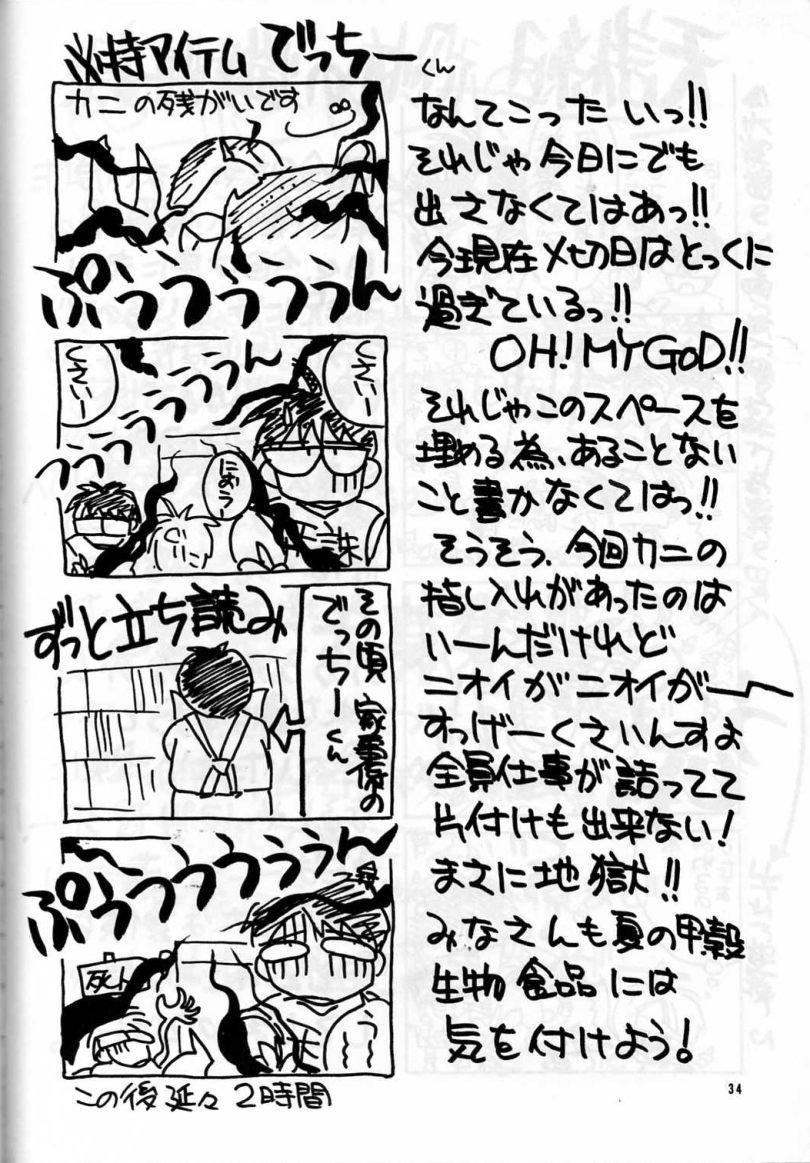 必特アイテム でっちーくん
カニの残がいです
ぷぅぅぅぅぅん
くさいー
くさいー
ぅぅぅぅぅぅん
におうー
天誅
その頃 家事係の
でっちーくん
ずっと立ち読み
ぷぅぅぅぅぅぅん
死人
う
この後延々2時間
なんてこったいっ!!
それじゃ今日にでも
出さなくてはあっ!!
今現在〆切日はとっくに
過ぎているっ!!
OH! MY GOD!!
それじゃこのスペースを
埋める為、あることない
こと書かなくてはっ!!
そうそう、今回カニの
指し入れがあったのは
いーんだけれど
ニオイがニオイがー
すっげーくさいんすよ
全員仕事が詰ってて
片付けも出来ない!
まさに地獄!!
みなさんも夏の甲殻
生物食品には
気を付けよう!
34